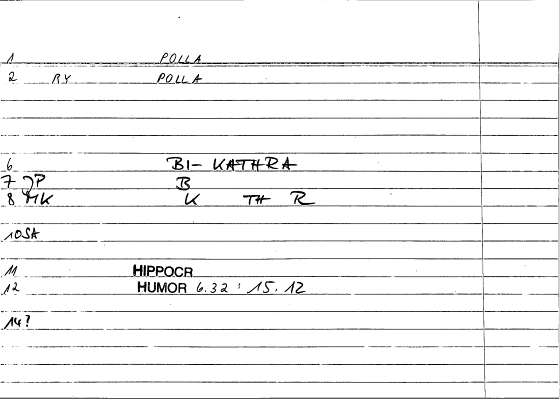 1 POLLA
2 RY POLLA
6 BI- KATHRA
7 JP B
8 MK K TH R
10 SA
11 HIPPOCR
12 HUMOR 6.32 : 15.12
14?